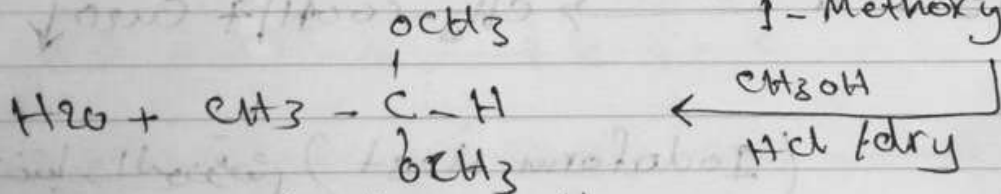 OCH3
1- Methoxy
H2O + CH3 - C - H
CH3OH
HCl /dry
OCH3